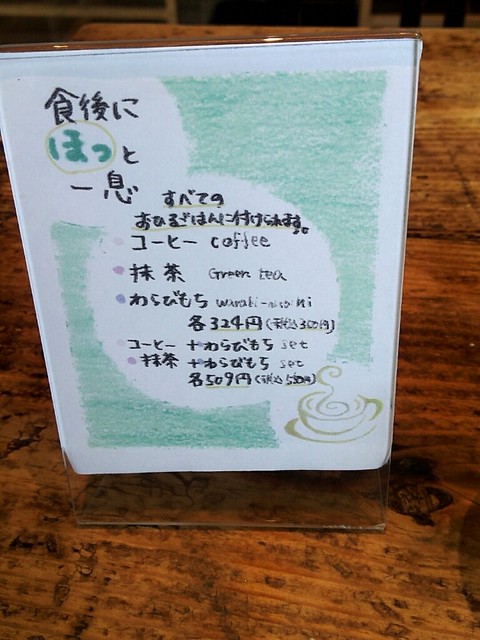 食後に
ほっと
一息
すべての
おひるごはんに付けられます。
コーヒー coffee
抹茶 Green tea
わらびもち warabi-mochi
各324円(税込350円)
コーヒー+わらびもち set
抹茶+わらびもち set
各509円(税込550円)